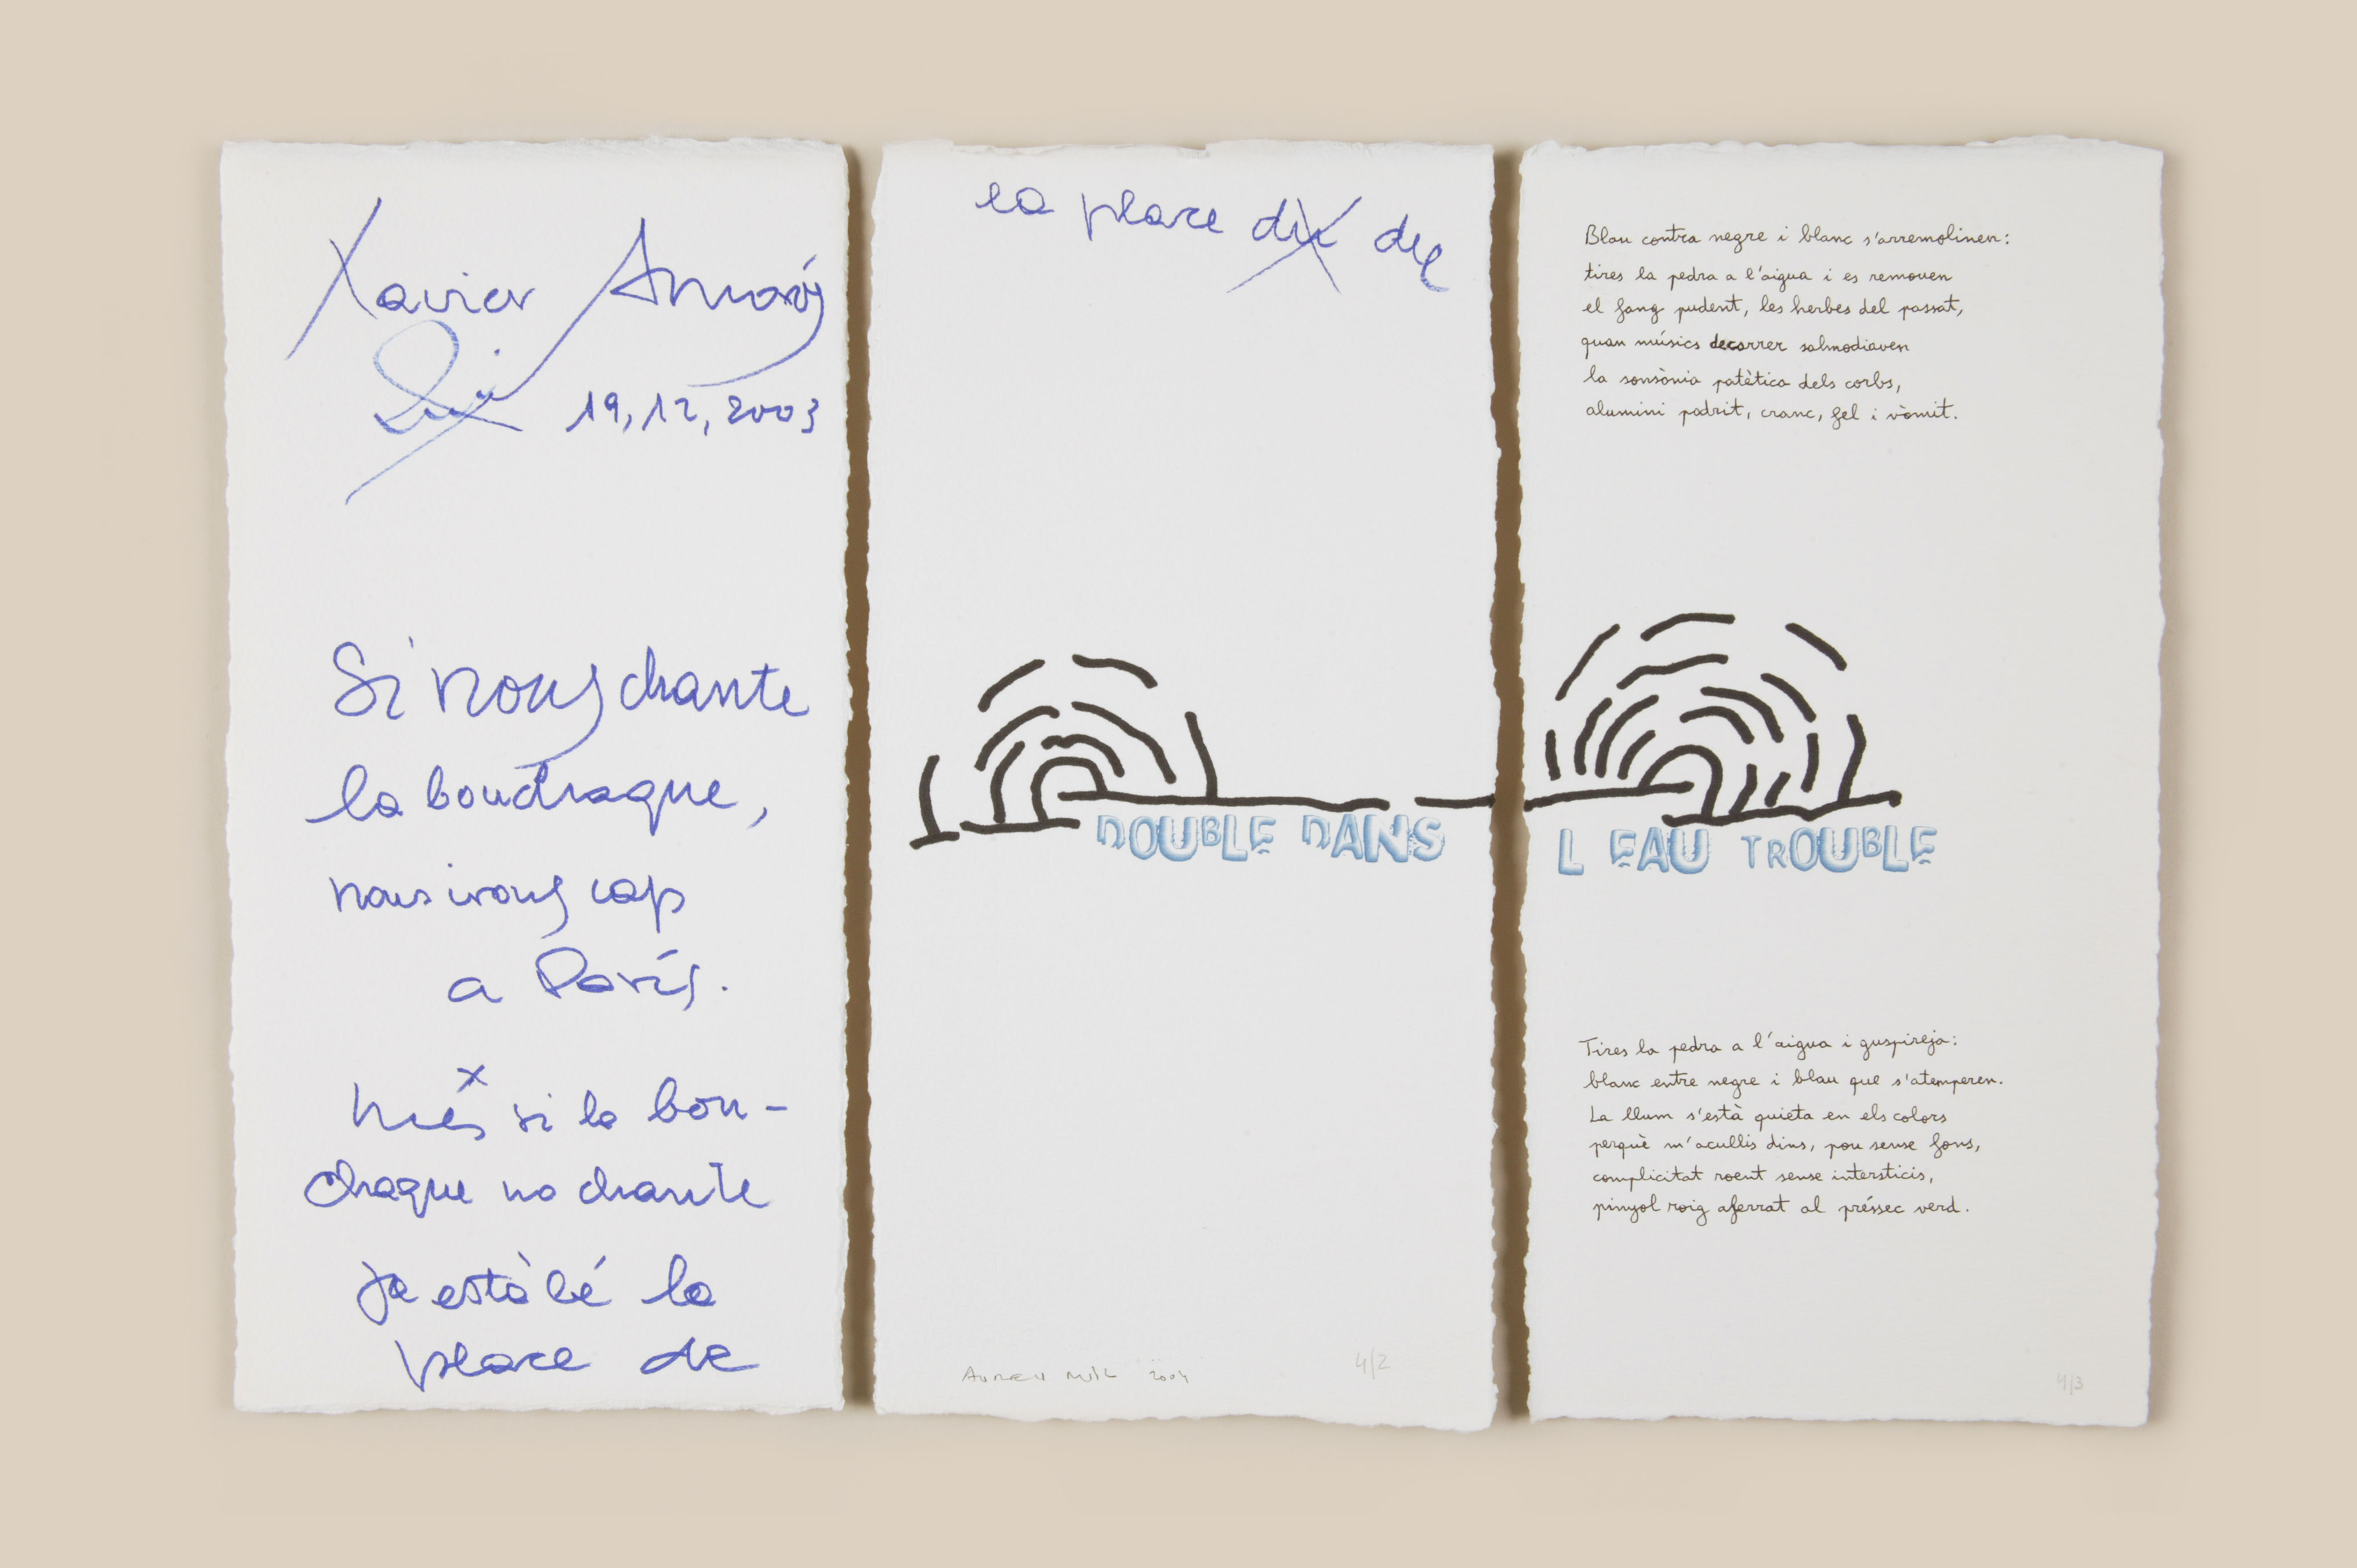 Xavier Amorós
19, 12, 2003
Si nous chante
la bouchaque,
nous irons cap
a París.
més si la bou-
chaque no chante
ja està bé la
place de
la place du del
DOUBLE DANS
AURELI RUIZ 2004
4/2
Blau contra negre i blanc s'arremolinen:
tires la pedra a l'aigua i es remouen
el fang pudent, les herbes del passat,
quan músics decarrer salmodiaven
la sonsònia patètica dels corbs,
alumini podrit, cranc, fel i vòmit.
L EAU TROUBLE
Tires la pedra a l'aigua i guspireja:
blanc entre negre i blau que s'atemperen.
La llum s'està quieta en els colors
perquè m'acullis dins, pou sense fons,
complicitat roent sense intersticis,
pinyol roig aferrat al préssec verd.
4/3